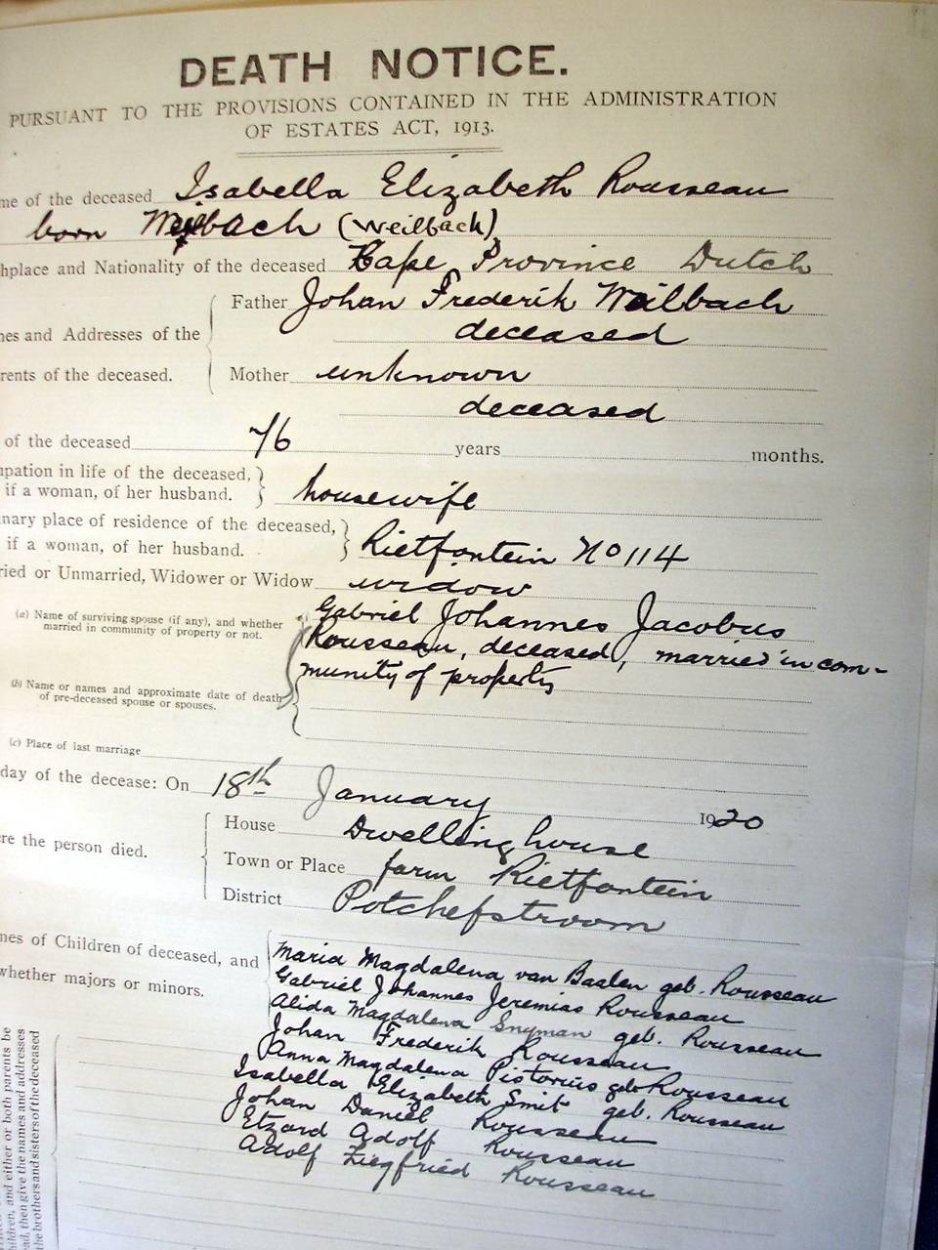 DEATH NOTICE.
PURSUANT TO THE PROVISIONS CONTAINED IN THE ADMINISTRATION
OF ESTATES ACT, 1913.
me of the deceased Isabella Elizabeth Rousseau
born Weilbach (Weilbach)
hplace and Nationality of the deceased Cape Province Dutch
Father Johan Frederik Weilbach
deceased
es and Addresses of the
rents of the deceased.
Mother unknown
deceased
of the deceased 76 years months.
pation in life of the deceased,
if a woman, of her husband.
housewife
nary place of residence of the deceased,
if a woman, of her husband.
Rietfontein No 114
ried or Unmarried, Widower or Widow widow
(a) Name of surviving spouse (if any), and whether
married in community of property or not.
Gabriel Johannes Jacobus
Rousseau, deceased, married in com-
munity of property
(b) Name or names and approximate date of death
of pre-deceased spouse or spouses.
(c) Place of last marriage
day of the decease: On 18th January 1920
re the person died.
House Dwelling house
Town or Place farm Rietfontein
District Potchefstroom
mes of Children of deceased, and
whether majors or minors.
Maria Magdalena van Baalen geb. Rousseau
Gabriel Johannes Jeremias Rousseau
Alida Magdalena Snyman geb. Rousseau
Johan Frederik Rousseau
Anna Magdalena Pistorius geb Rousseau
Isabella Elizabeth Smit geb. Rousseau
Johan Daniel Rousseau
Etzard Adolf Rousseau
Adolf Ziegfried Rousseau
hildren, and either or both parents be
ad, then give the names and addresses
the brothers and sisters of the deceased